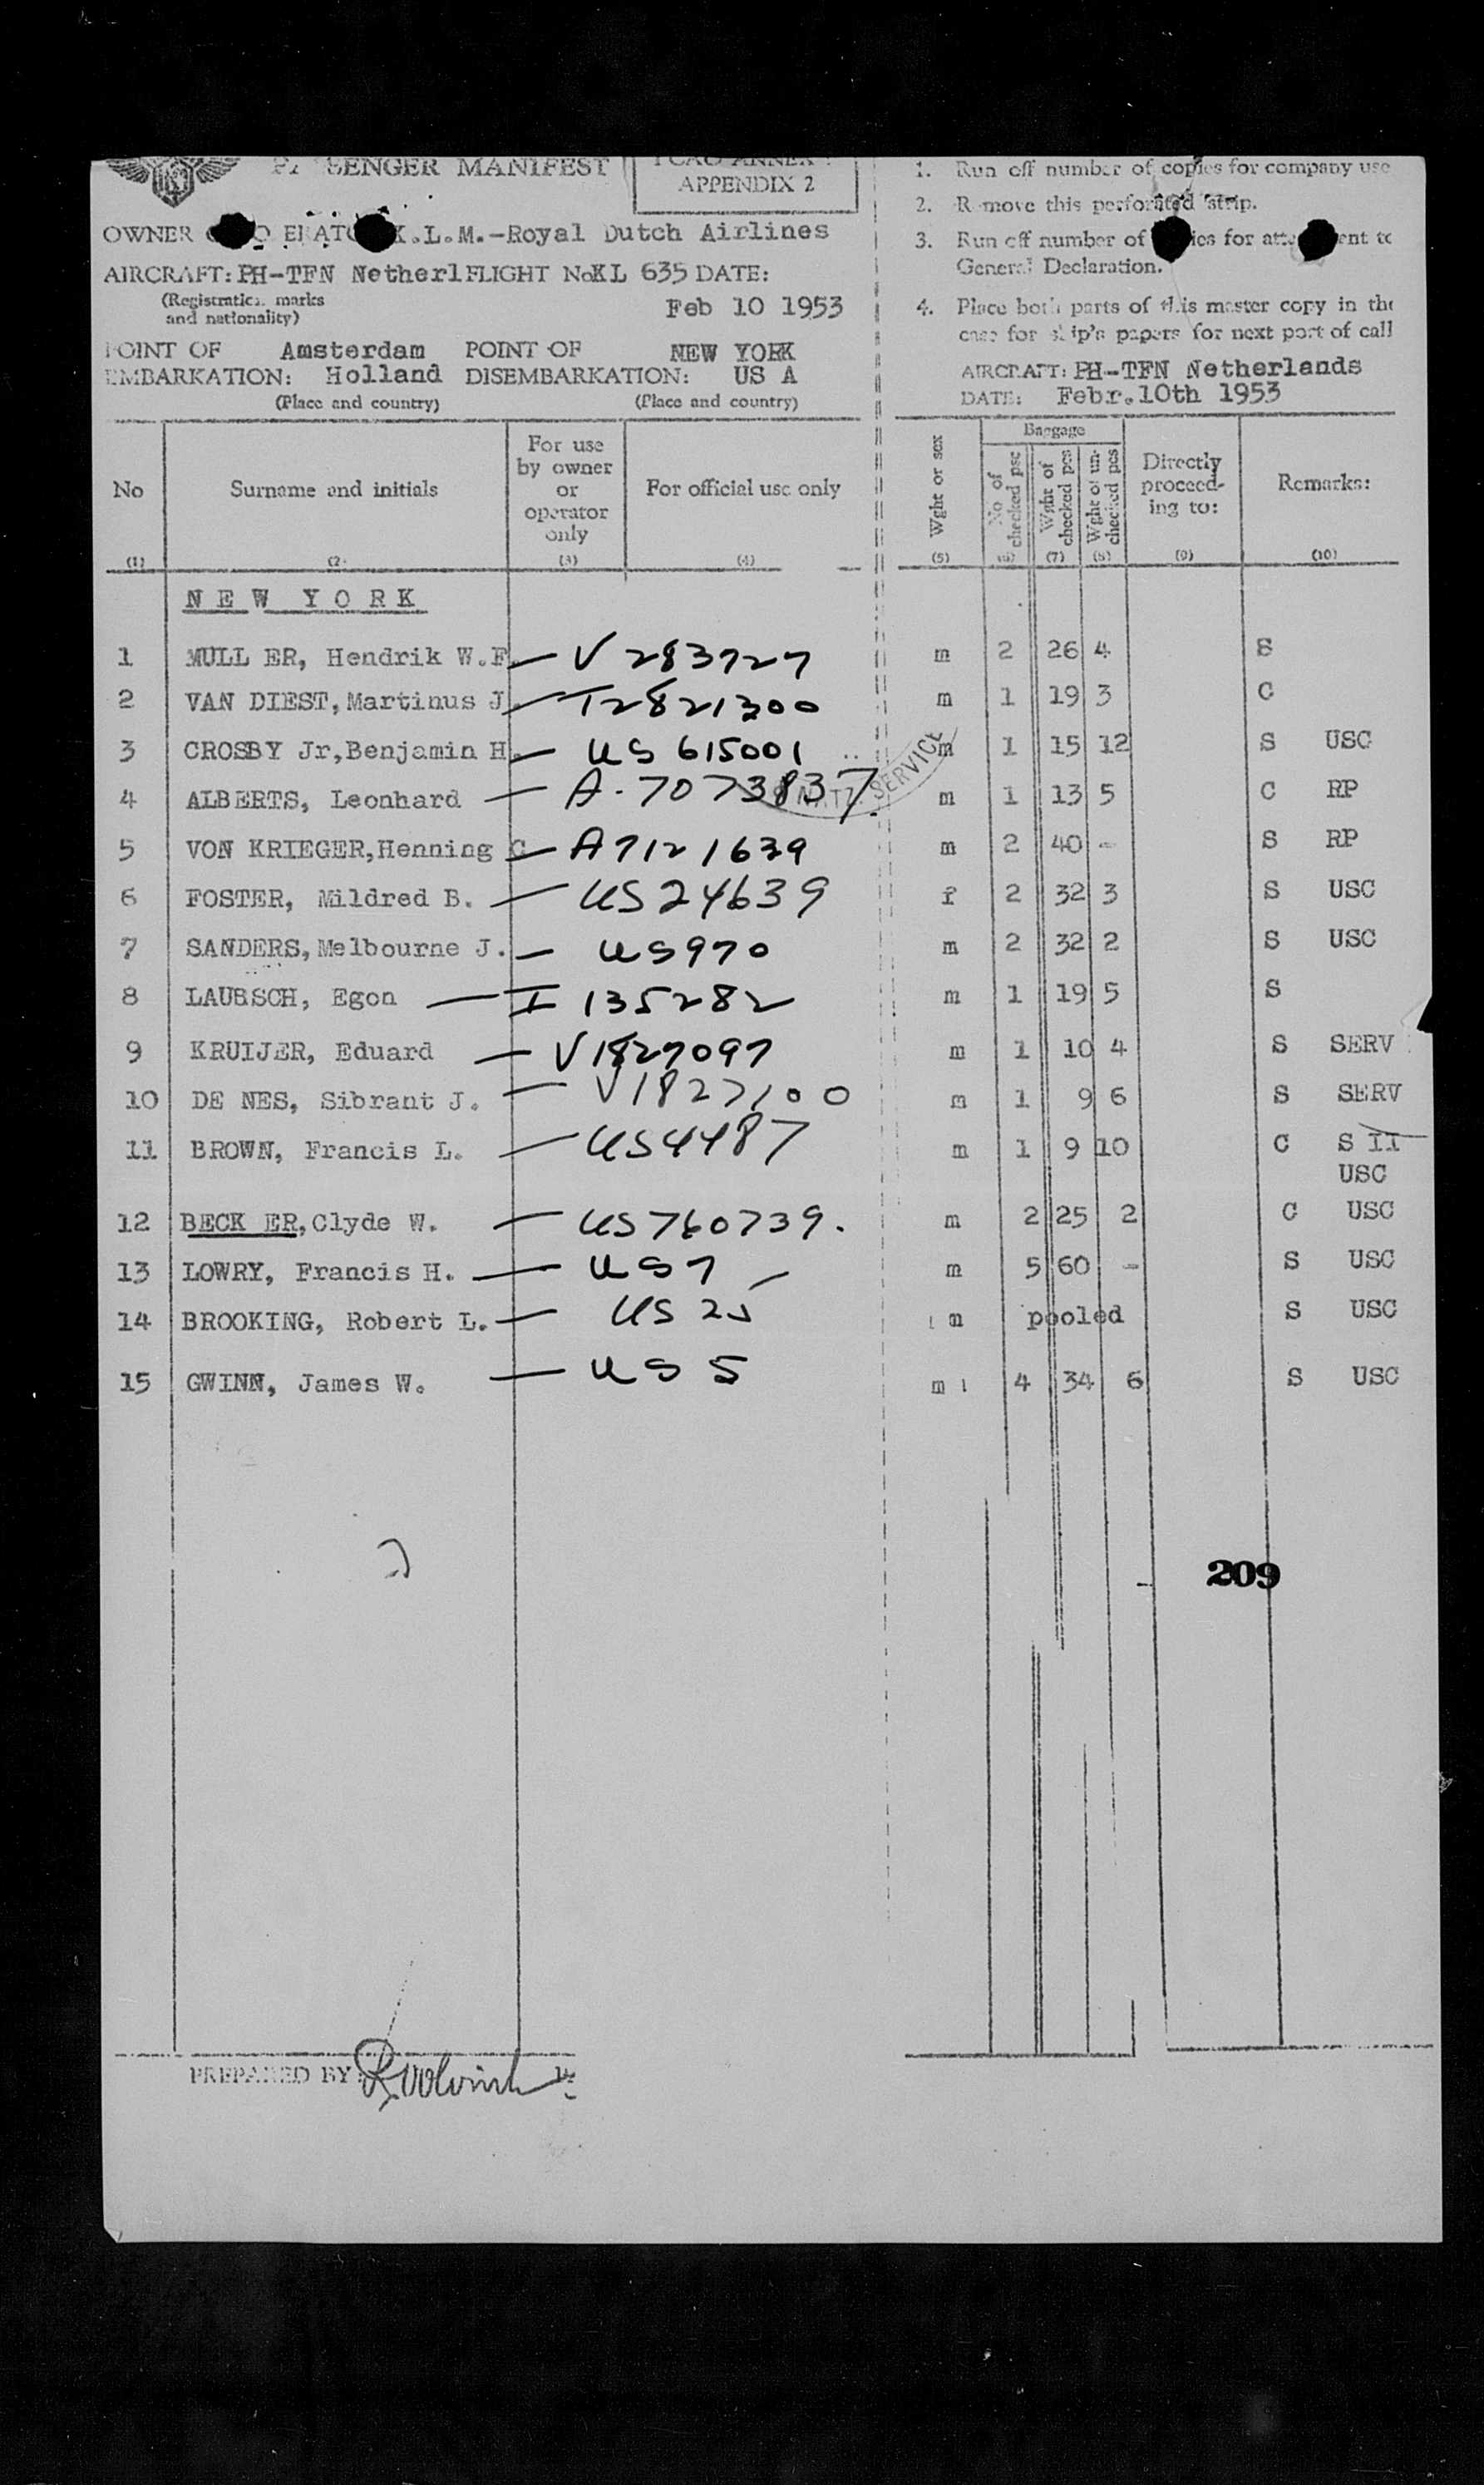 PASSENGER MANIFEST
ICAO ANNEX
APPENDIX 2
OWNER K.L.M.-Royal Dutch Airlines
AIRCRAFT: PH-TFN Netherl FLIGHT No KL 635 DATE:
(Registration marks
and nationality)
Feb 10 1953
POINT OF Amsterdam POINT OF NEW YORK
EMBARKATION: Holland DISEMBARKATION: US A
(Place and country) (Place and country)
1. Run off number of copies for company use
2. Remove this perforated strip.
3. Run off number of copies for attachment to
General Declaration.
4. Place both parts of this master copy in the
case for ship's papers for next port of call
AIRCRAFT: PH-TFN Netherlands
DATE: Febr.10th 1953
No Surname and initials For use by owner or operator only For official use only Wght or sex Baggage No of checked psc Wght of checked pcs Wght of unchecked pcs Directly proceeding to: Remarks:
(1) (2) (3) (4) (5) (6) (7) (8) (9) (10)
NEW YORK
1 MULL ER, Hendrik W.F. — V 283727 m 2 26 4 S
2 VAN DIEST,Martinus J. — T2821300 m 1 19 3 C
3 CROSBY Jr,Benjamin H. — US 615001 m 1 15 12 S USC
NATZ. SERVICE
4 ALBERTS, Leonhard — A-7073837 m 1 13 5 C RP
5 VON KRIEGER,Henning C — A7121639 m 2 40 - S RP
6 FOSTER, Mildred B. — US24639 f 2 32 3 S USC
7 SANDERS,Melbourne J. — US970 m 2 32 2 S USC
8 LAUBSCH, Egon — I 135282 m 1 19 5 S
9 KRUIJER, Eduard — V1827097 m 1 10 4 S SERV
10 DE NES, Sibrant J. — V1827100 m 1 9 6 S SERV
11 BROWN, Francis L. — US4487 m 1 9 10 C S II
USC
12 BECK ER,Clyde W. — US760739. m 2 25 2 C USC
13 LOWRY, Francis H. — US7 m 5 60 - S USC
14 BROOKING, Robert L. — US 25 m pooled S USC
15 GWINN, James W. — US 5 m 4 34 6 S USC
2
209
PREPARED BY